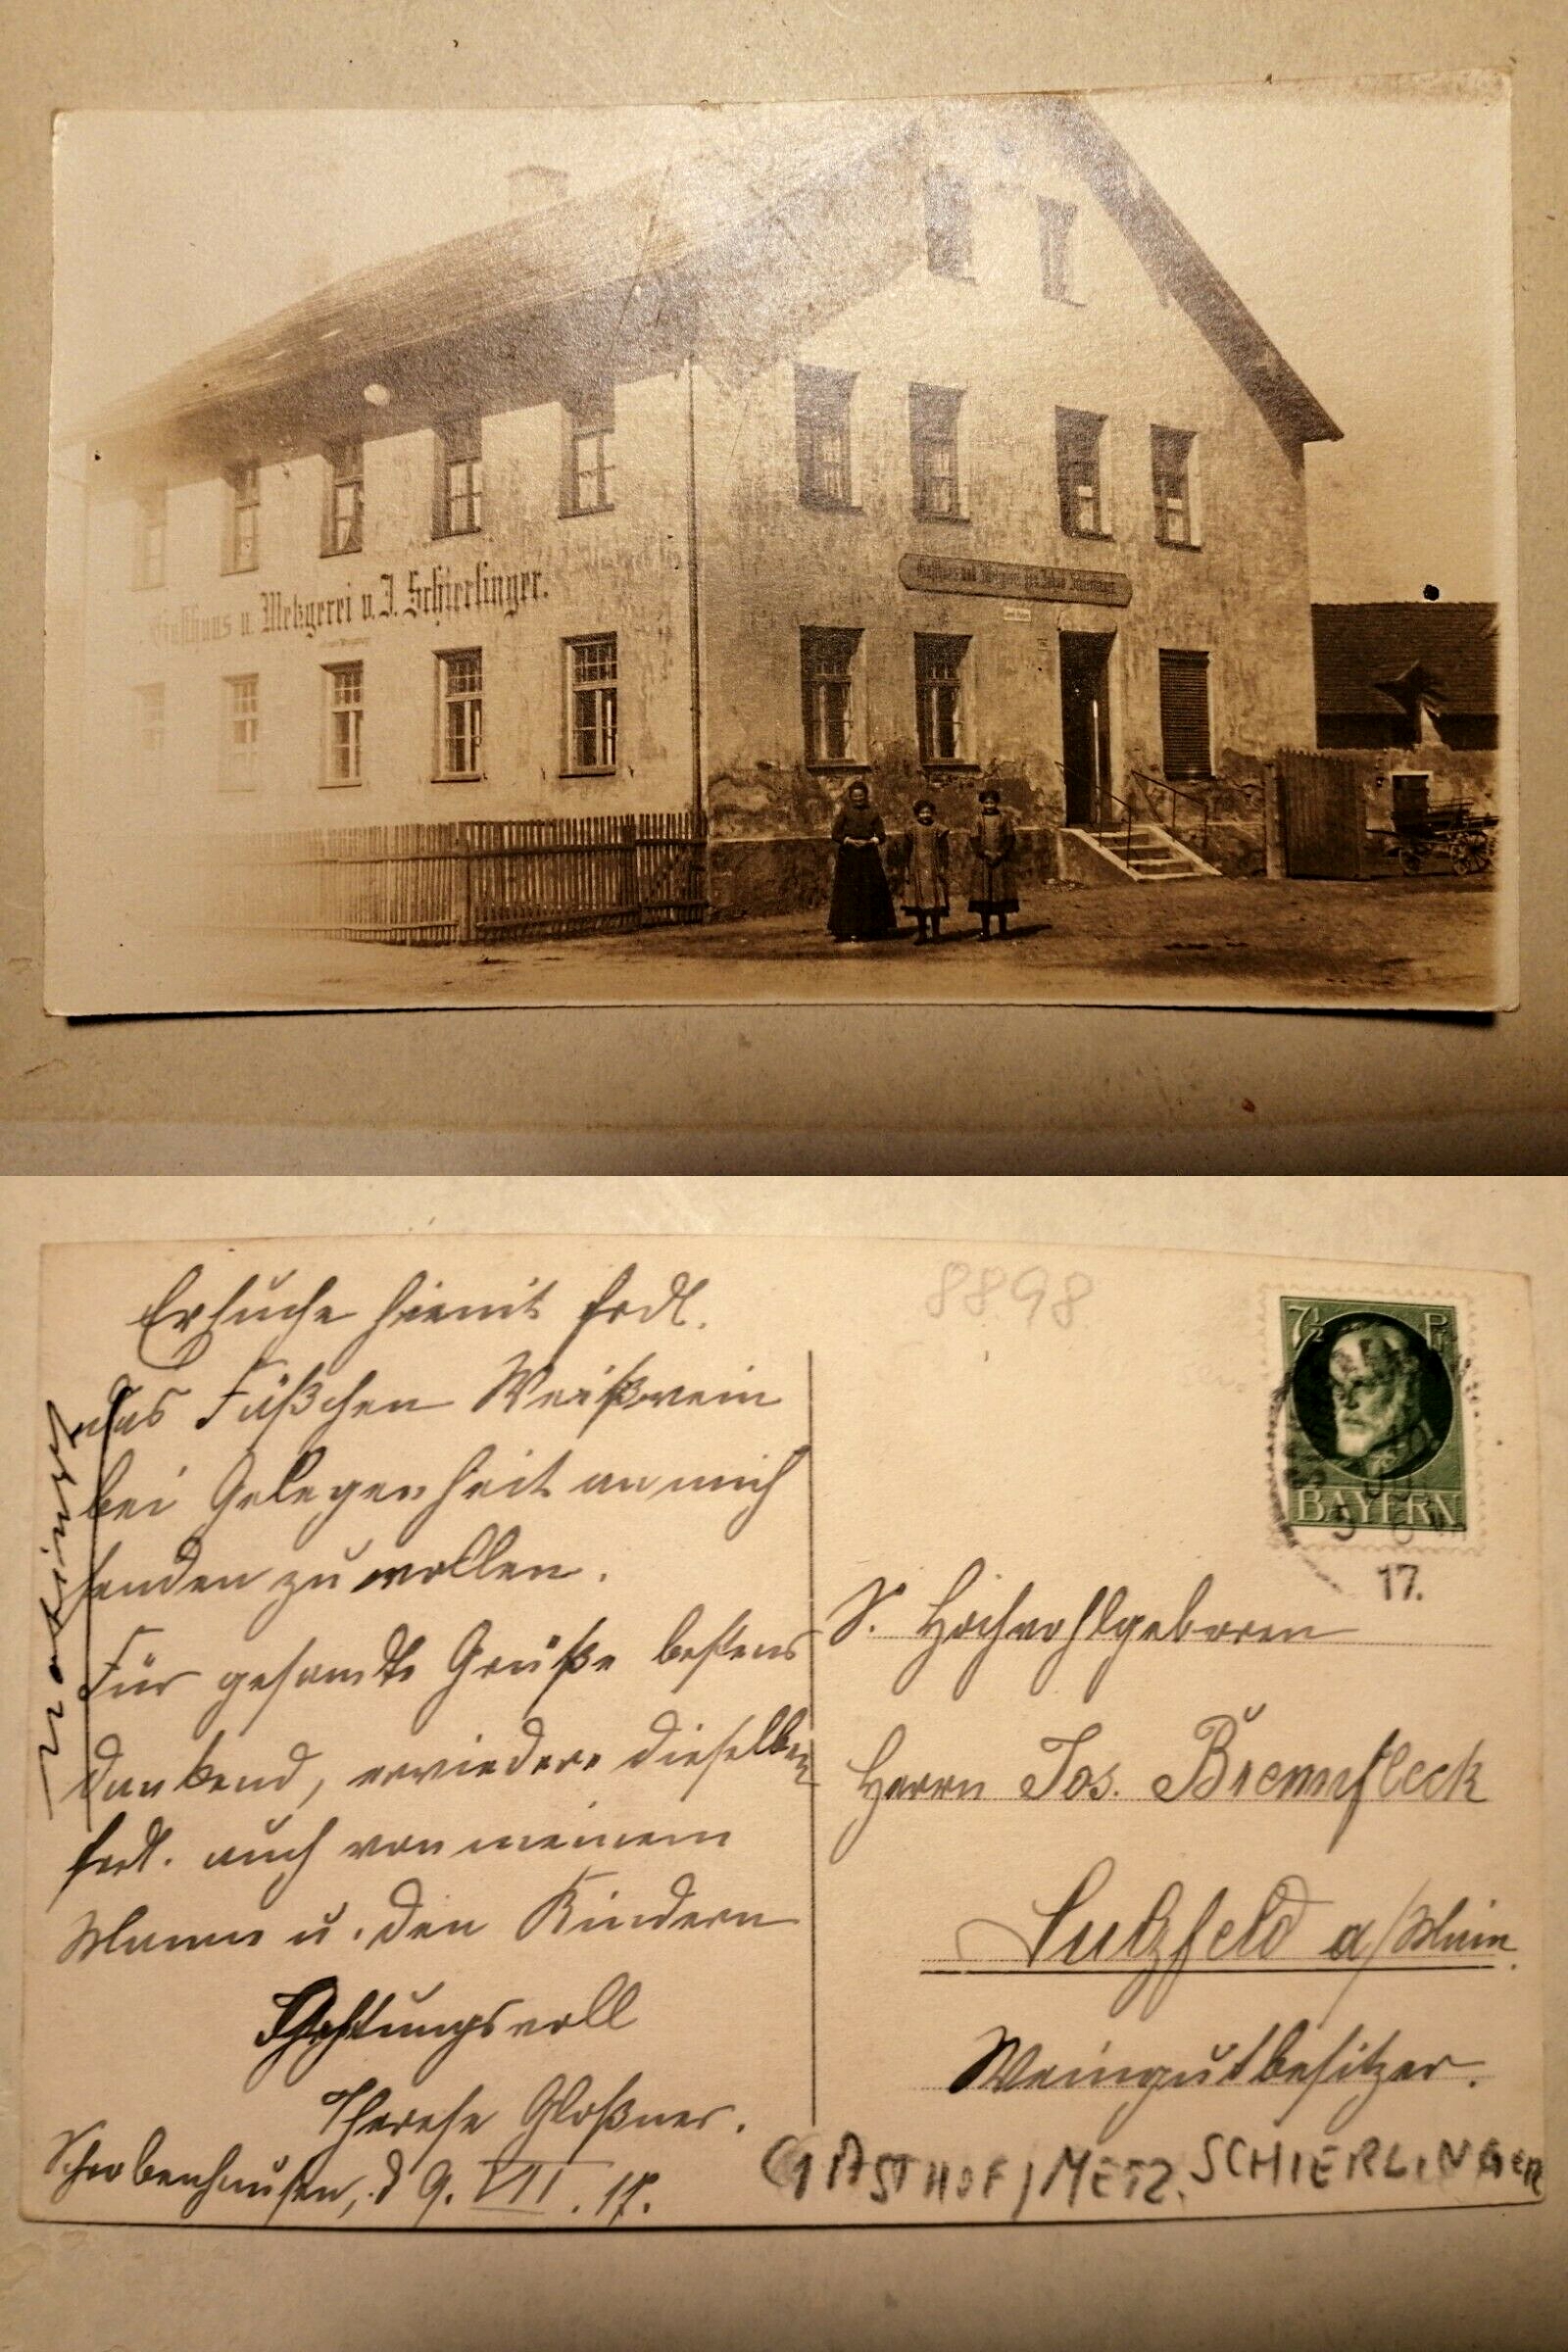 Gasthaus u. Metzgerei v. J. Schierlinger.
Gasthaus und Metzgerei von Schierlinger
Ersuche hiemit frdl.
das Fäßchen Weißwein
bei Gelegenheit an mich
senden zu wollen.
Für gesandte Grüße bestens
dankend, erwiedere dieselben
frdl. auch von meinem
Mann u. den Kindern
Achtungsvoll
Therese Gloßner.
Schrobenhausen, d 9. VII. 17.
8898
7½ P
BAYERN
17.
S. Hochwohlgeboren
Herrn Jos. Brennfleck
Sulzfeld a/Main.
Weingutbesitzer.
GASTHOF/METZ. SCHIERLINGER